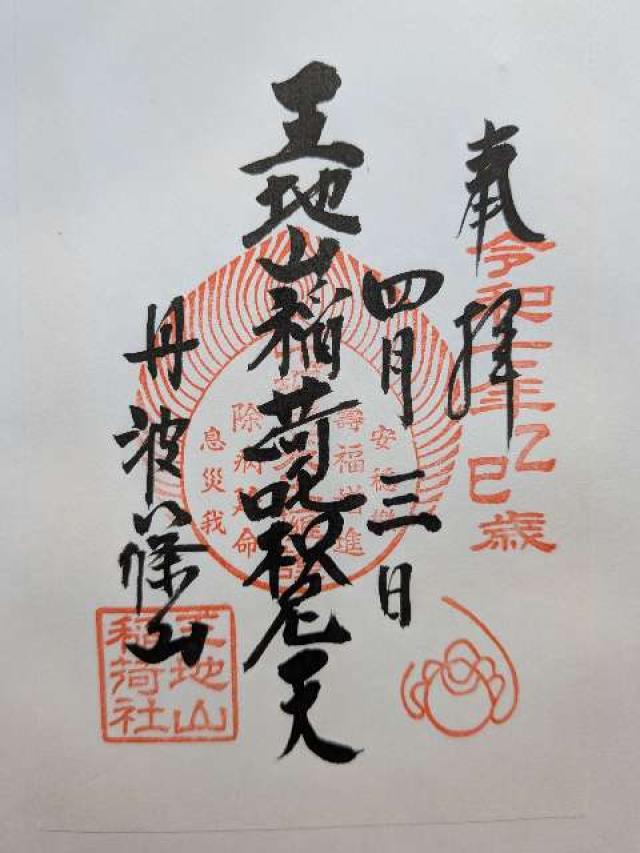 奉拝
令和七年乙巳歳
四月三日
王地山稲荷吒枳尼天
丹波篠山
壽福増進
除病延命
息災我
王地山
稲荷社